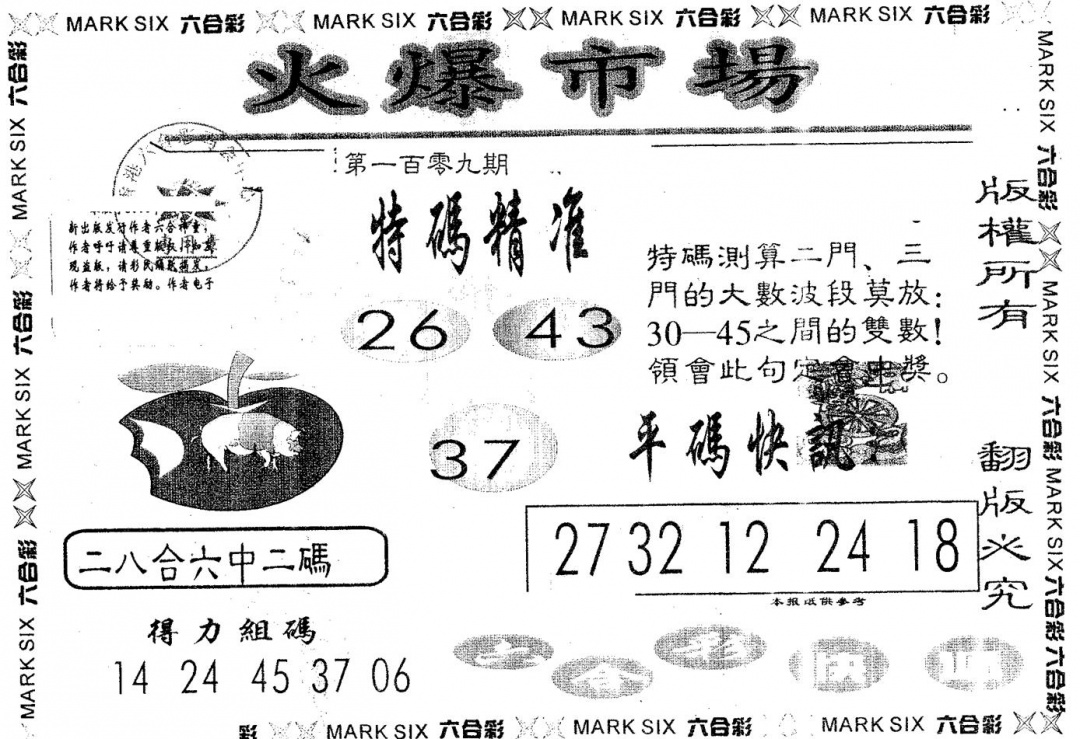 MARK SIX 六合彩 MARK SIX 六合彩 MARK SIX 六合彩 MARK SIX 六合彩
火爆市場
第一百零九期
特碼精准
26 43
37
新出版发行作者六合神童，
作者呼吁请尊重版权
作者将给予奖励。作者电子
特碼測算二門、三
門的大數波段莫放:
30—45之間的雙數!
領會此句定會中獎。
平碼快訊:
27 32 12 24 18
本报仅供参考
二八合六中二碼
得力組碼
14 24 45 37 06
六合彩快訊
版權所有
翻版必究
MARK SIX 六合彩 MARK SIX 六合彩 MARK SIX 六合彩
MARK SIX 六合彩 MARK SIX 六合彩 MARK SIX 六合彩 六合彩
彩 MARK SIX 六合彩 MARK SIX 六合彩 MARK SIX 六合彩